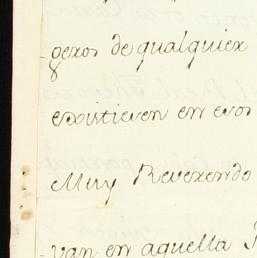 geros de qualquier
existieren en esos
Muy Reverendo
van en aquella